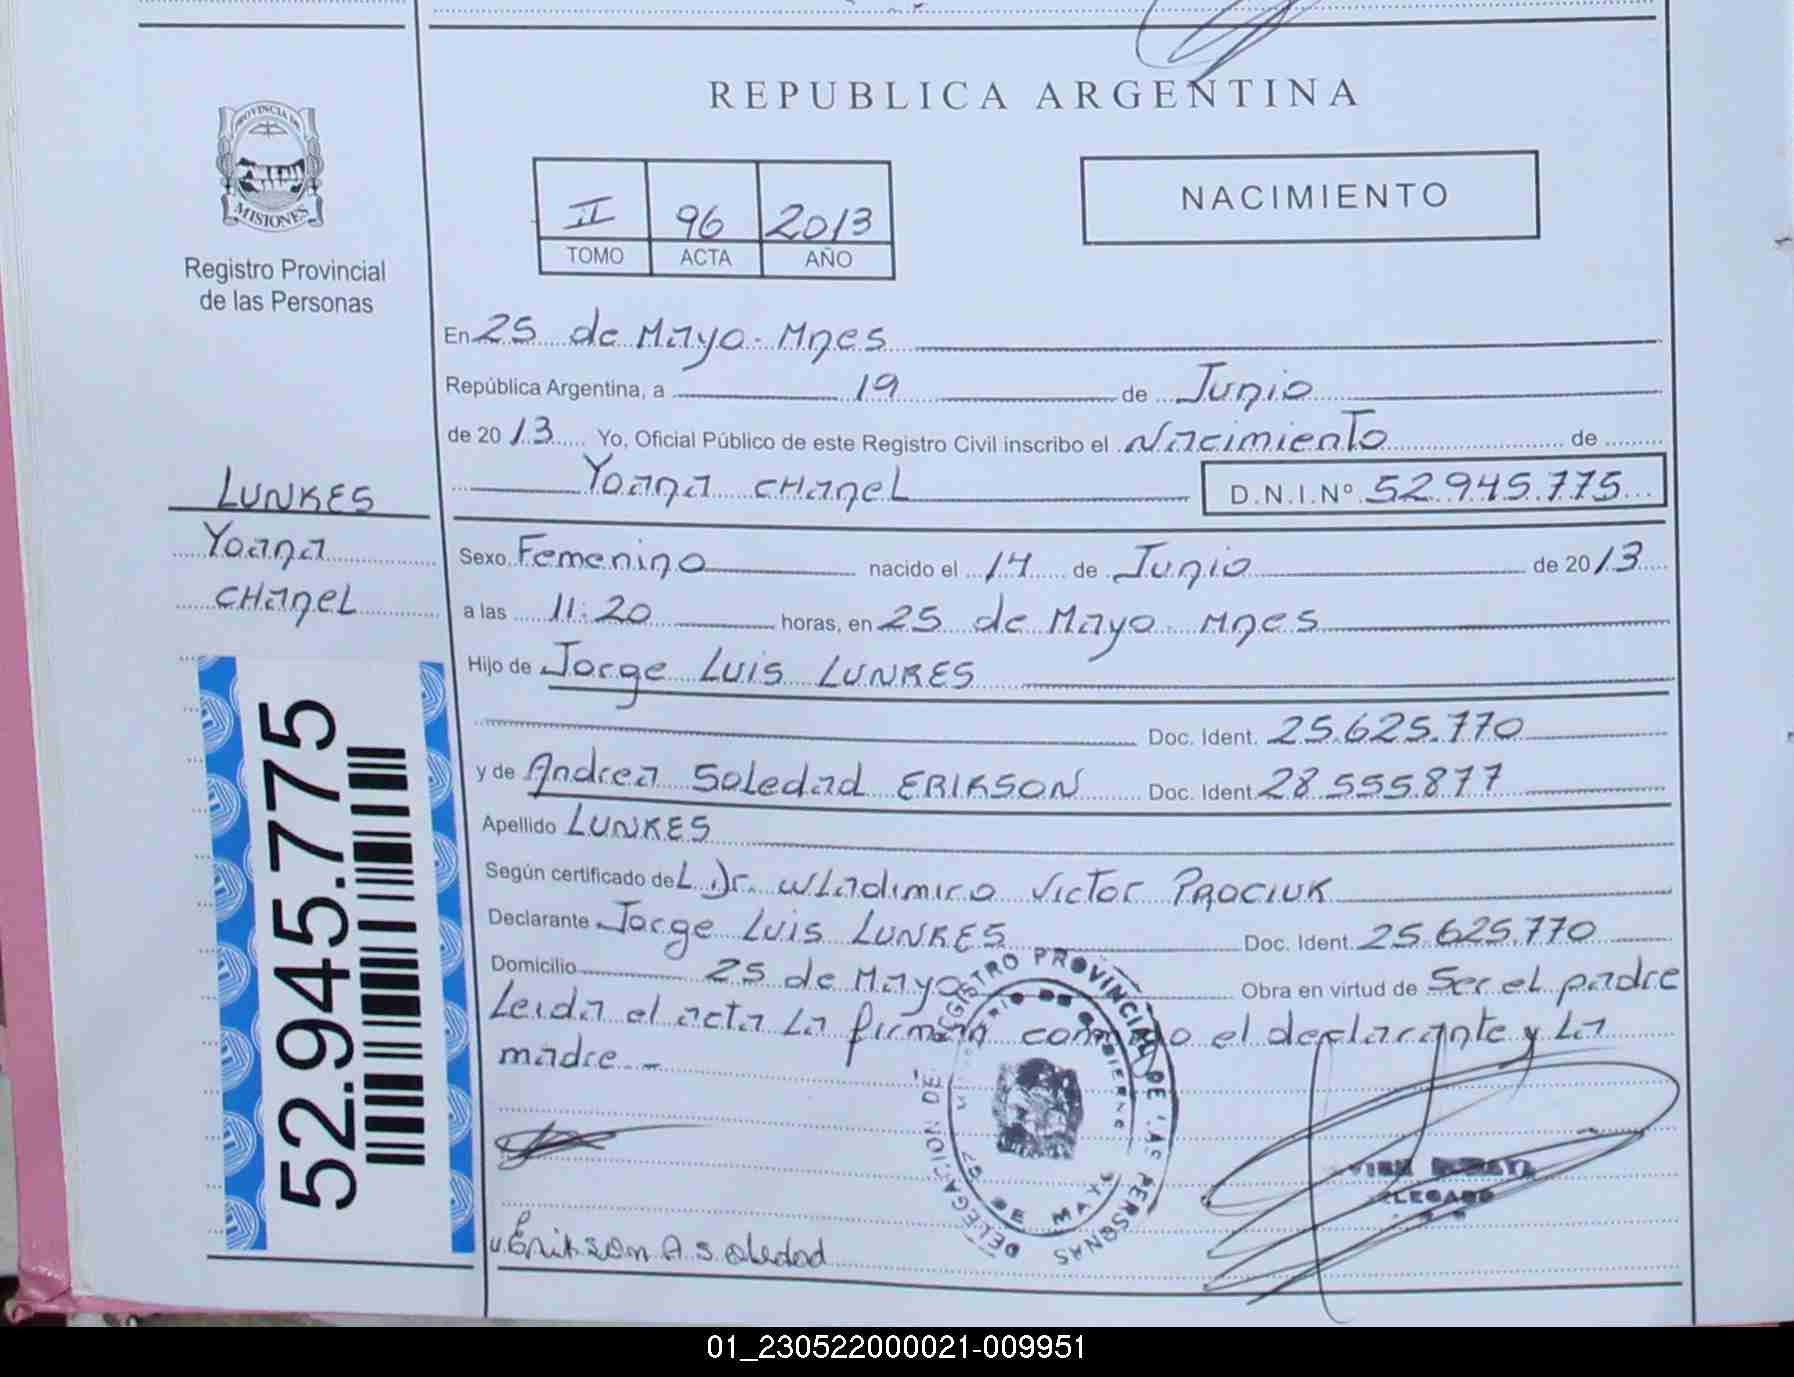 REPUBLICA ARGENTINA
PROVINCIA DE
MISIONES
Registro Provincial
de las Personas
II 96 2013
TOMO ACTA AÑO
NACIMIENTO
En 25 de Mayo. Mnes
República Argentina, a 19 de Junio
de 2013 Yo, Oficial Público de este Registro Civil inscribo el Nacimiento de
Yoana CHanel D.N.I.Nº 52.945.775
LUNKES
Yoana
CHanel
Sexo Femenino nacido el 14 de Junio de 2013
a las 11:20 horas, en 25 de Mayo. Mnes
Hijo de Jorge Luis LUNKES
Doc. Ident. 25.625.770
y de Andrea Soledad ERIKSON Doc. Ident. 28.555.877
Apellido LUNKES
Según certificado del Dr. Wladimiro Victor PROCIUK
Declarante Jorge Luis LUNKES Doc. Ident. 25.625.770
Domicilio 25 de Mayo Obra en virtud de Ser el padre
Leida el acta la firman conmigo el declarante y la
madre.-
52.945.775
REGISTRO PROVINCIAL DE LAS PERSONAS
DELEGACION DE
25 DE MAYO
Erikson A. Soledad
01_230522000021-009951